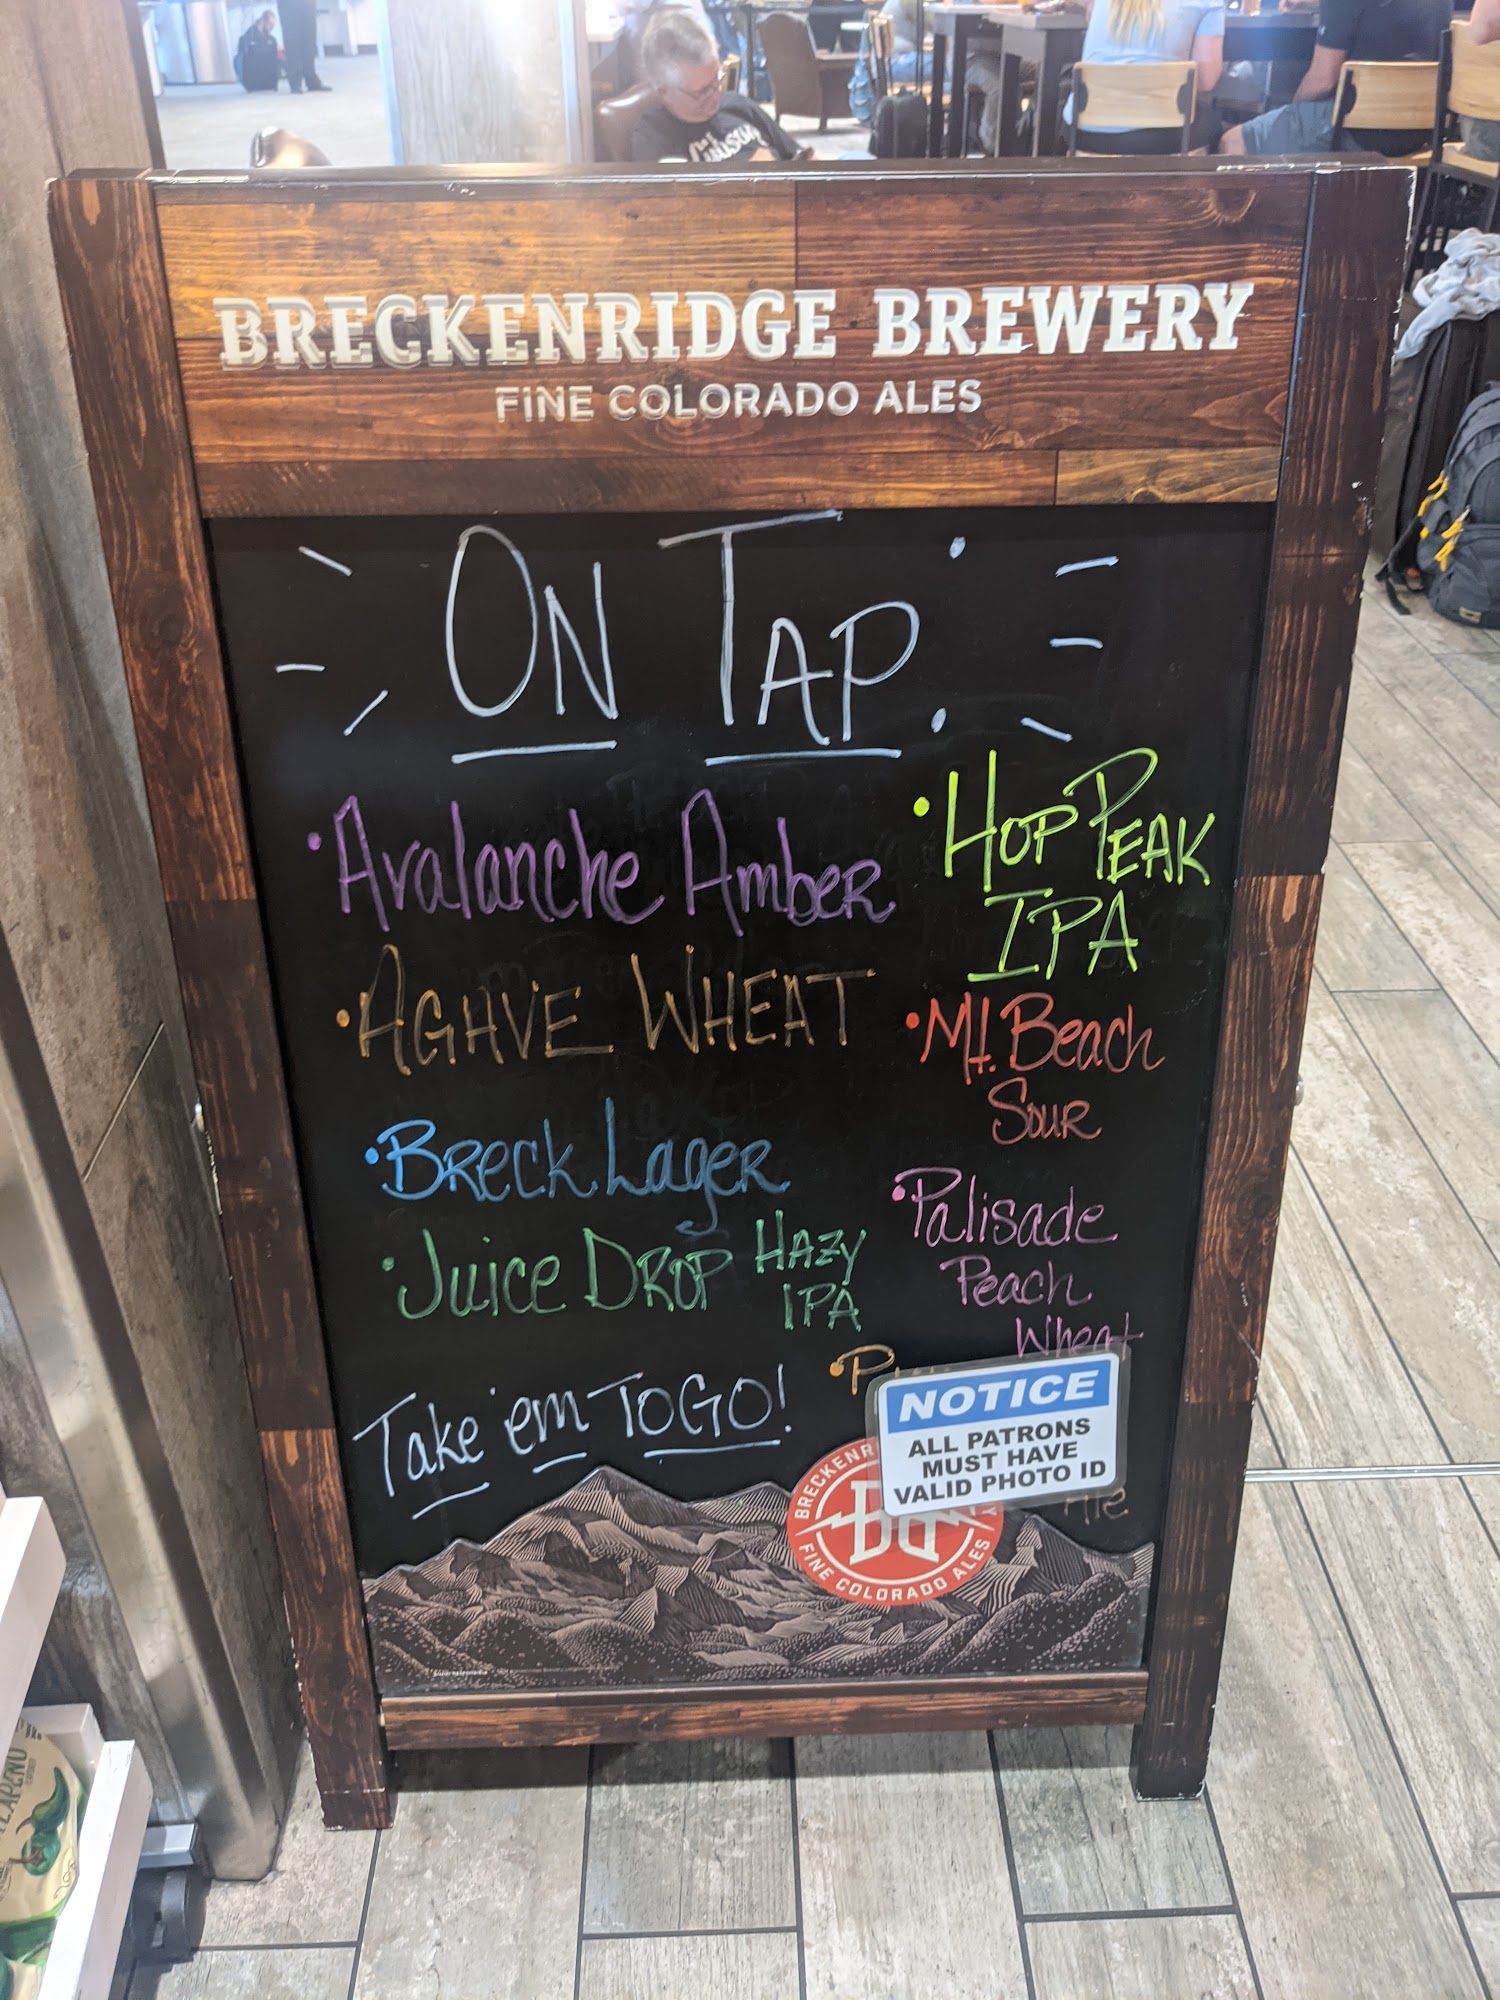 BRECKENRIDGE BREWERY
FINE COLORADO ALES
ON TAP:
• Avalanche Amber
• AGAVE WHEAT
• Breck Lager
• Juice Drop HAZY
IPA
• HOP PEAK
IPA
• Mt. Beach
Sour
• Palisade
Peach
Wheat
Take 'em TOGO!
NOTICE
ALL PATRONS
MUST HAVE
VALID PHOTO ID
FINE COLORADO ALES